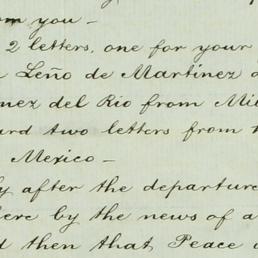 from you –
2 letters, one for your
Leño de Martinez
nez del Rio from Mil
ard two letters from
Mexico –
y after the departure
here by the news of a
d then that Peace